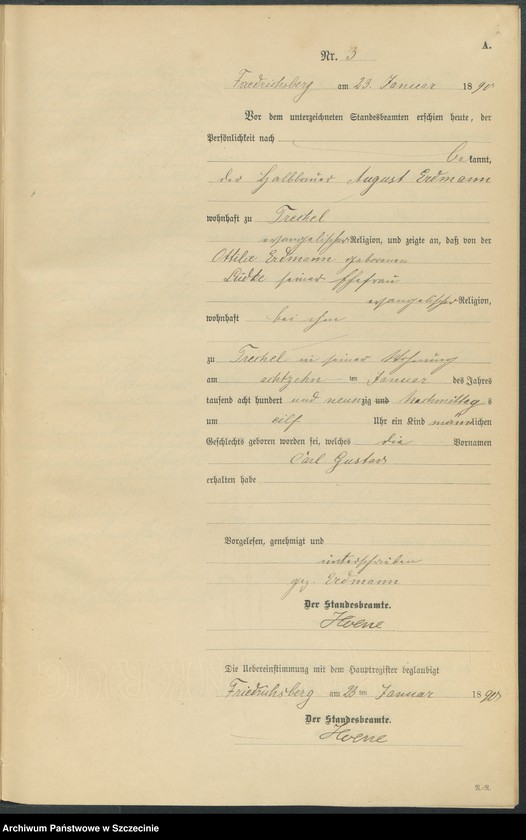 A.
Nr. 3
Friedrichsberg am 23. Januar 1890
Vor dem unterzeichneten Standesbeamten erschien heute, der
Persönlichkeit nach
bekannt,
der Halbbauer August Erdmann
wohnhaft zu Trechel
evangelischer Religion, und zeigte an, daß von der
Ottilie Erdmann geborenen
Lüdke seiner Ehefrau
evangelischer Religion,
wohnhaft bei ihm
zu Trechel in seiner Wohnung
am achtzehn ten Januar des Jahres
tausend acht hundert und neunzig und Nachmittags
um eilf Uhr ein Kind männlichen
Geschlechts geboren worden sei, welches die Vornamen
Carl Gustav
erhalten habe
Vorgelesen, genehmigt und
unterschrieben
gez. Erdmann
Der Standesbeamte.
Die Uebereinstimmung mit dem Hauptregister beglaubigt
Friedrichsberg am 23ten Januar 1890
Der Standesbeamte.
R.-R.
Archiwum Państwowe w Szczecinie